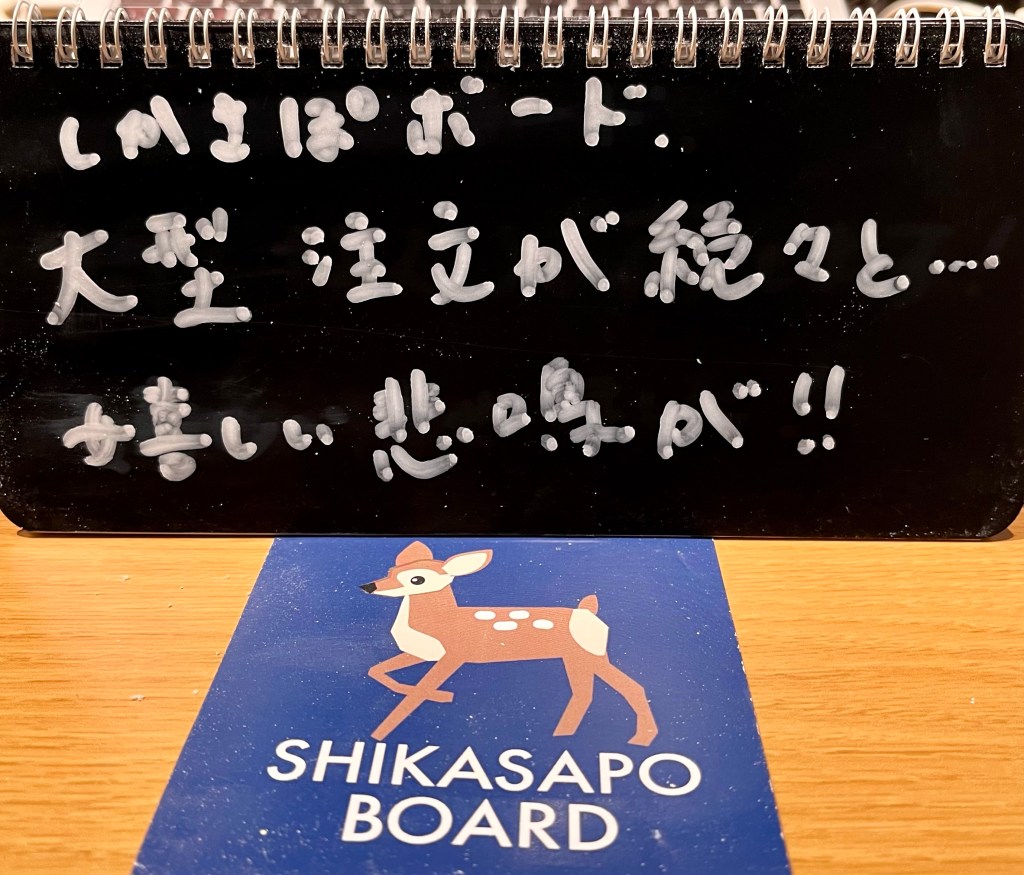 しかさぽボード.
大型注文が続々と…
嬉しい悲鳴が!!
SHIKASAPO
BOARD